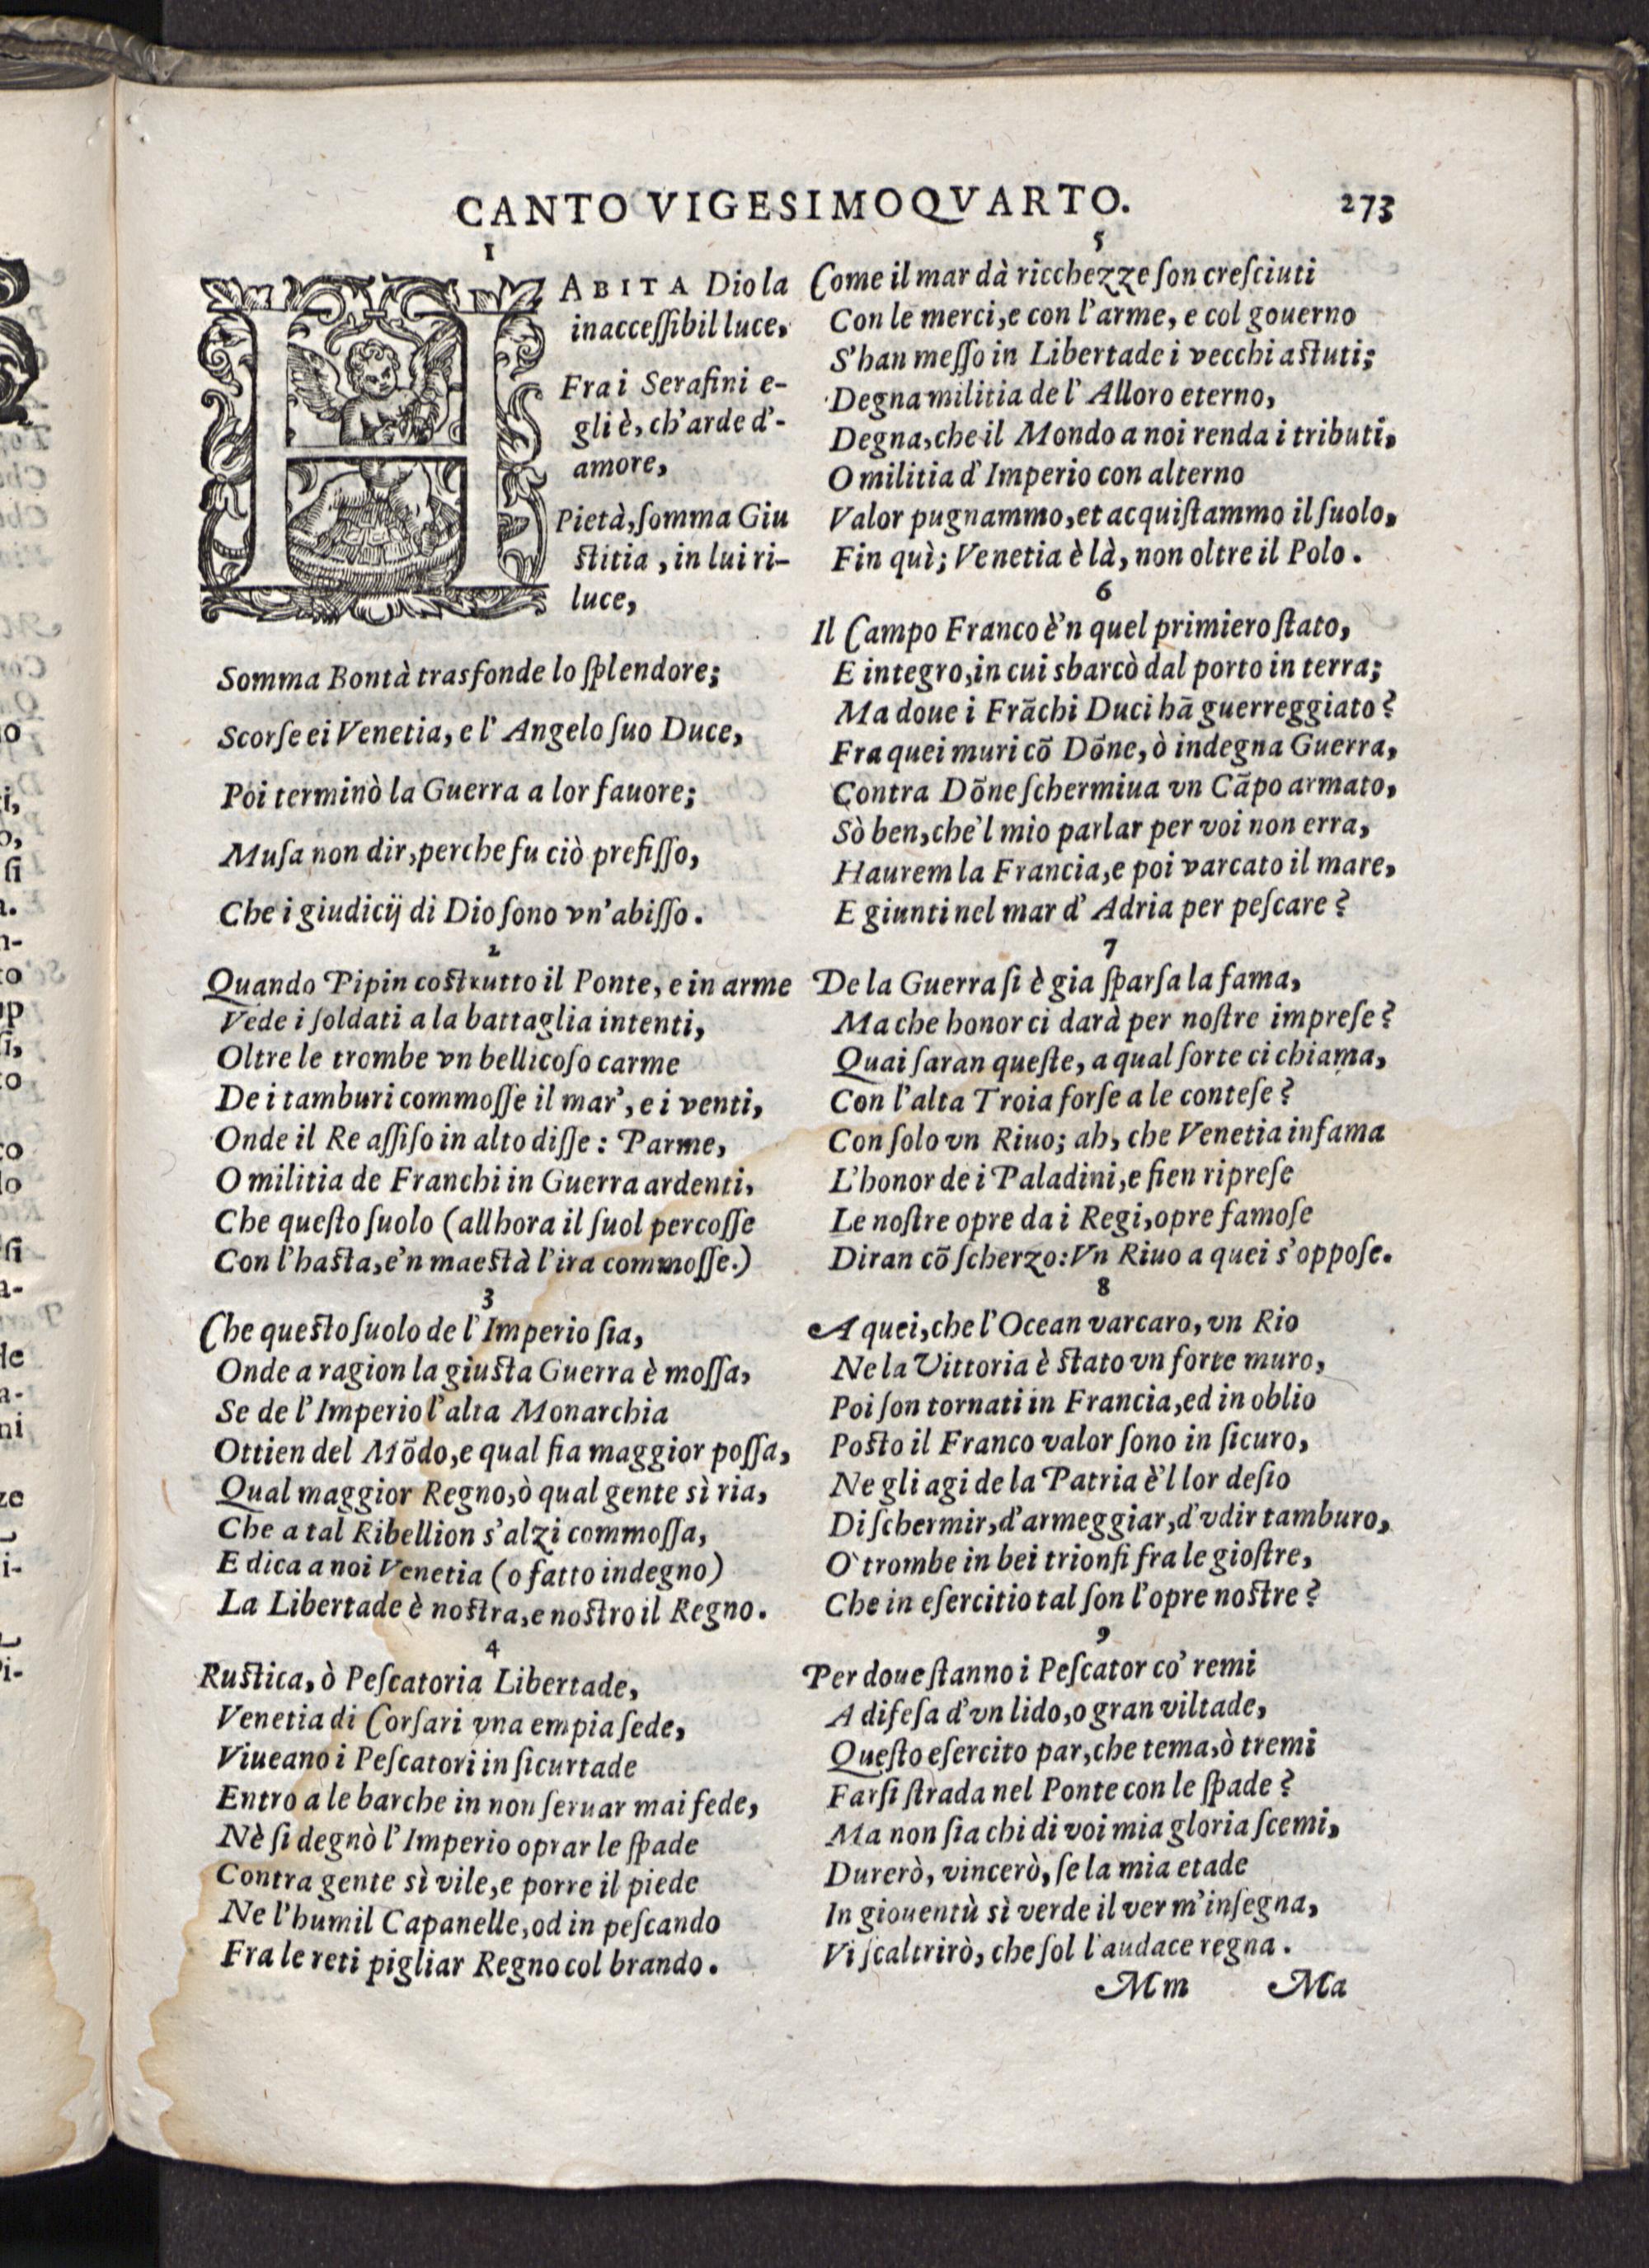 CANTO VIGESIMOQVARTO.
273
1
HABITA Dio la
inaccessibil luce,
Fra i Serafini e-
gli è, ch'arde d'-
amore,
Pietà, somma Giu
stitia, in lui ri-
luce,
Somma Bontà trasfonde lo splendore;
Scorse ei Venetia, e l'Angelo suo Duce,
Poi terminò la Guerra a lor fauore;
Musa non dir, perche fu ciò prefisso,
Che i giudicij di Dio sono vn'abisso.
2
Quando Pipin costrutto il Ponte, e in arme
Vede i soldati a la battaglia intenti,
Oltre le trombe vn bellicoso carme
De i tamburi commosse il mar', e i venti,
Onde il Re assiso in alto disse: Parme,
O militia de Franchi in Guerra ardenti,
Che questo suolo (allhora il suol percosse
Con l'hasta, e'n maestà l'ira commosse.)
3
Che questo suolo de l'Imperio sia,
Onde a ragion la giusta Guerra è mossa,
Se de l'Imperio l'alta Monarchia
Ottien del Mõdo, e qual fia maggior possa,
Qual maggior Regno, ò qual gente sì ria,
Che a tal Ribellion s'alzi commossa,
E dica a noi Venetia (o fatto indegno)
La Libertade è nostra, e nostro il Regno.
4
Rustica, ò Pescatoria Libertade,
Venetia di Corsari vna empia sede,
Viueano i Pescatori in sicurtade
Entro a le barche in non seruar mai fede,
Nè si degnò l'Imperio oprar le spade
Contra gente sì vile, e porre il piede
Ne l'humil Capanelle, od in pescando
Fra le reti pigliar Regno col brando.
5
Come il mar dà ricchezze son cresciuti
Con le merci, e con l'arme, e col gouerno
S'han messo in Libertade i vecchi astuti;
Degna militia de l'Alloro eterno,
Degna, che il Mondo a noi renda i tributi,
O militia d'Imperio con alterno
Valor pugnammo, et acquistammo il suolo,
Fin quì; Venetia è là, non oltre il Polo.
6
Il Campo Franco è'n quel primiero stato,
E integro, in cui sbarcò dal porto in terra;
Ma doue i Frãchi Duci hã guerreggiato?
Fra quei muri cõ Dõne, ò indegna Guerra,
Contra Dõne schermiua vn Cãpo armato,
Sò ben, che'l mio parlar per voi non erra,
Haurem la Francia, e poi varcato il mare,
E giunti nel mar d'Adria per pescare?
7
De la Guerra si è gia sparsa la fama,
Ma che honor ci darà per nostre imprese?
Quai saran queste, a qual sorte ci chiama,
Con l'alta Troia forse a le contese?
Con solo vn Riuo; ah, che Venetia infama
L'honor de i Paladini, e fien riprese
Le nostre opre da i Regi, opre famose
Diran cõ scherzo: Vn Riuo a quei s'oppose.
8
A quei, che l'Ocean varcaro, vn Rio
Ne la Vittoria è stato vn forte muro,
Poi son tornati in Francia, ed in oblio
Posto il Franco valor sono in sicuro,
Ne gli agi de la Patria è'l lor desio
Di schermir, d'armeggiar, d'vdir tamburo,
O' trombe in bei trionfi fra le giostre,
Che in esercitio tal son l'opre nostre?
9
Per doue stanno i Pescator co' remi
A difesa d'vn lido, o gran viltade,
Questo esercito par, che tema, ò tremi
Farsi strada nel Ponte con le spade?
Ma non sia chi di voi mia gloria scemi,
Durerò, vincerò, se la mia etade
In giouentù sì verde il ver m'insegna,
Vi scaltrirò, che sol l'audace regna.
Mm Ma